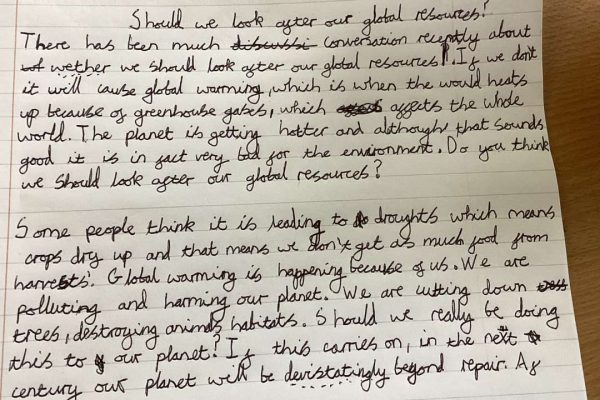 Should we look after our global resources?
There has been much discussi conversation recently about
wether we should look after our global resources. If we don't
it will cause global warming, which is when the would heats
up because of greenhouse gases, which affects the whole
world. The planet is getting hotter and although that sounds
good it is in fact very bad for the environment. Do you think
we should look after our global resources?
Some people think it is leading to droughts which means
crops dry up and that means we don't get as much food from
harvests. Global warming is happening because of us. We are
polluting and harming our planet. We are cutting down
trees, destroying animals habitats. Should we really be doing
this to our planet? If this carries on, in the next
century our planet will be devistatingly beyond repair. As